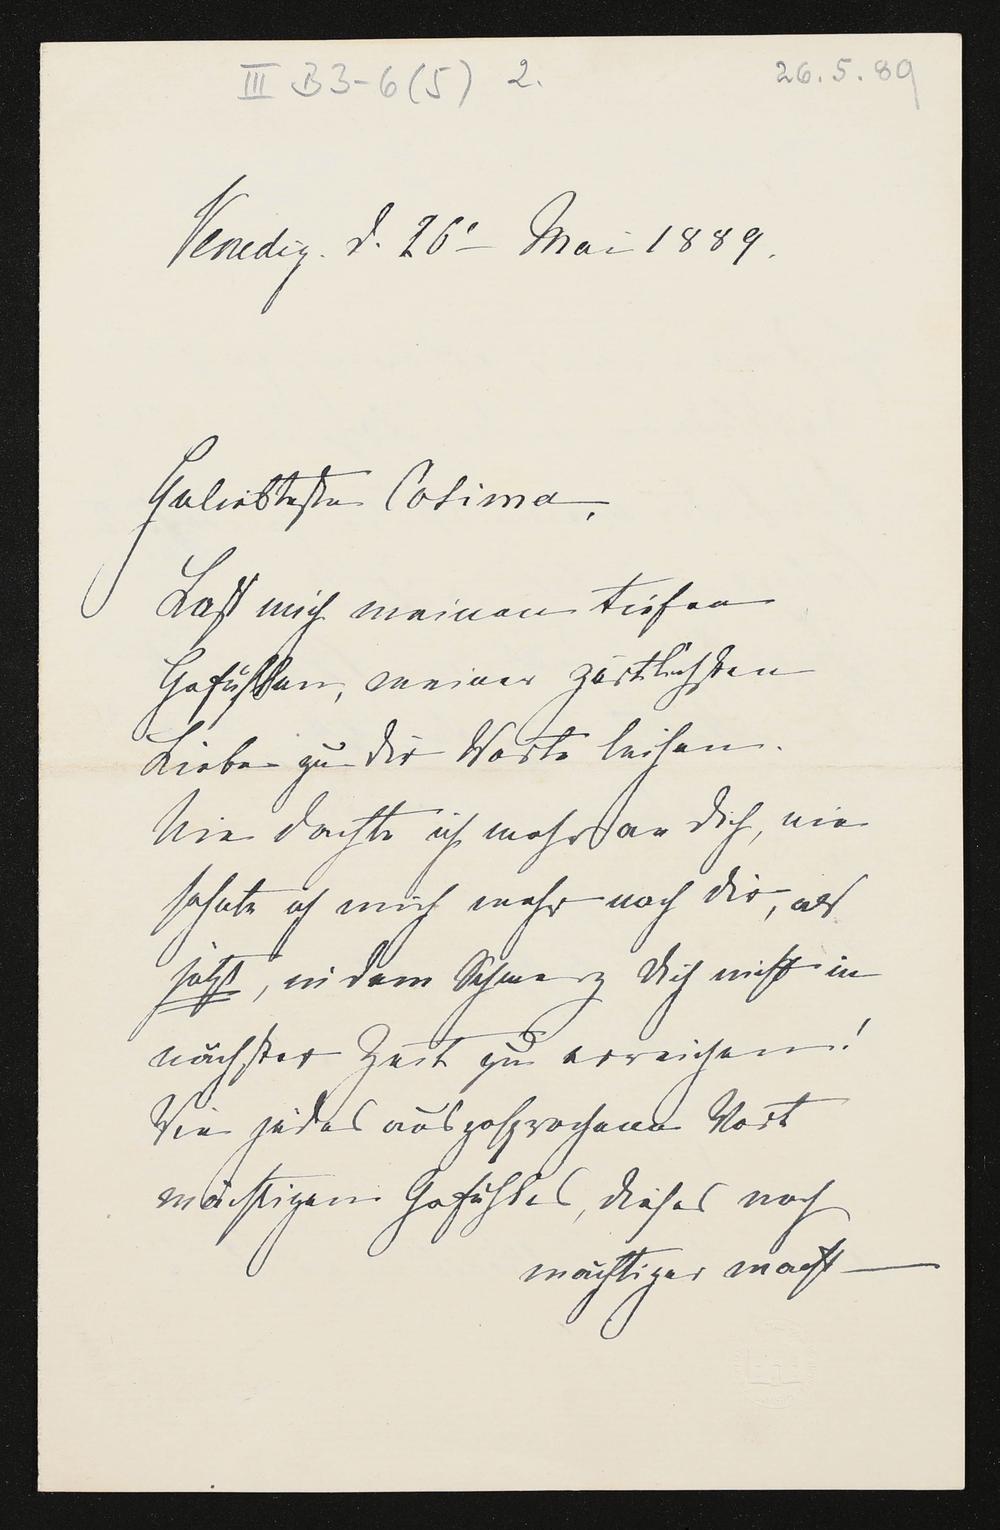 III B3-6(5) 2. 26.5.89
Venedig. d. 26° Mai 1889.
Geliebteste Cosima,
Laß mich meinen tiefen
Gefühlen, meiner zärtlichsten
Liebe zu dir Worte leihen.
Nie dachte ich mehr an dich, nie
sehnte ich mich mehr nach dir, als
jetzt, in dem Schmerz dich nicht in
nächster Zeit zu erreichen!
Wie jedes ausgesprochene Wort
mächtigen Gefühles, dieses noch
mächtiger macht —